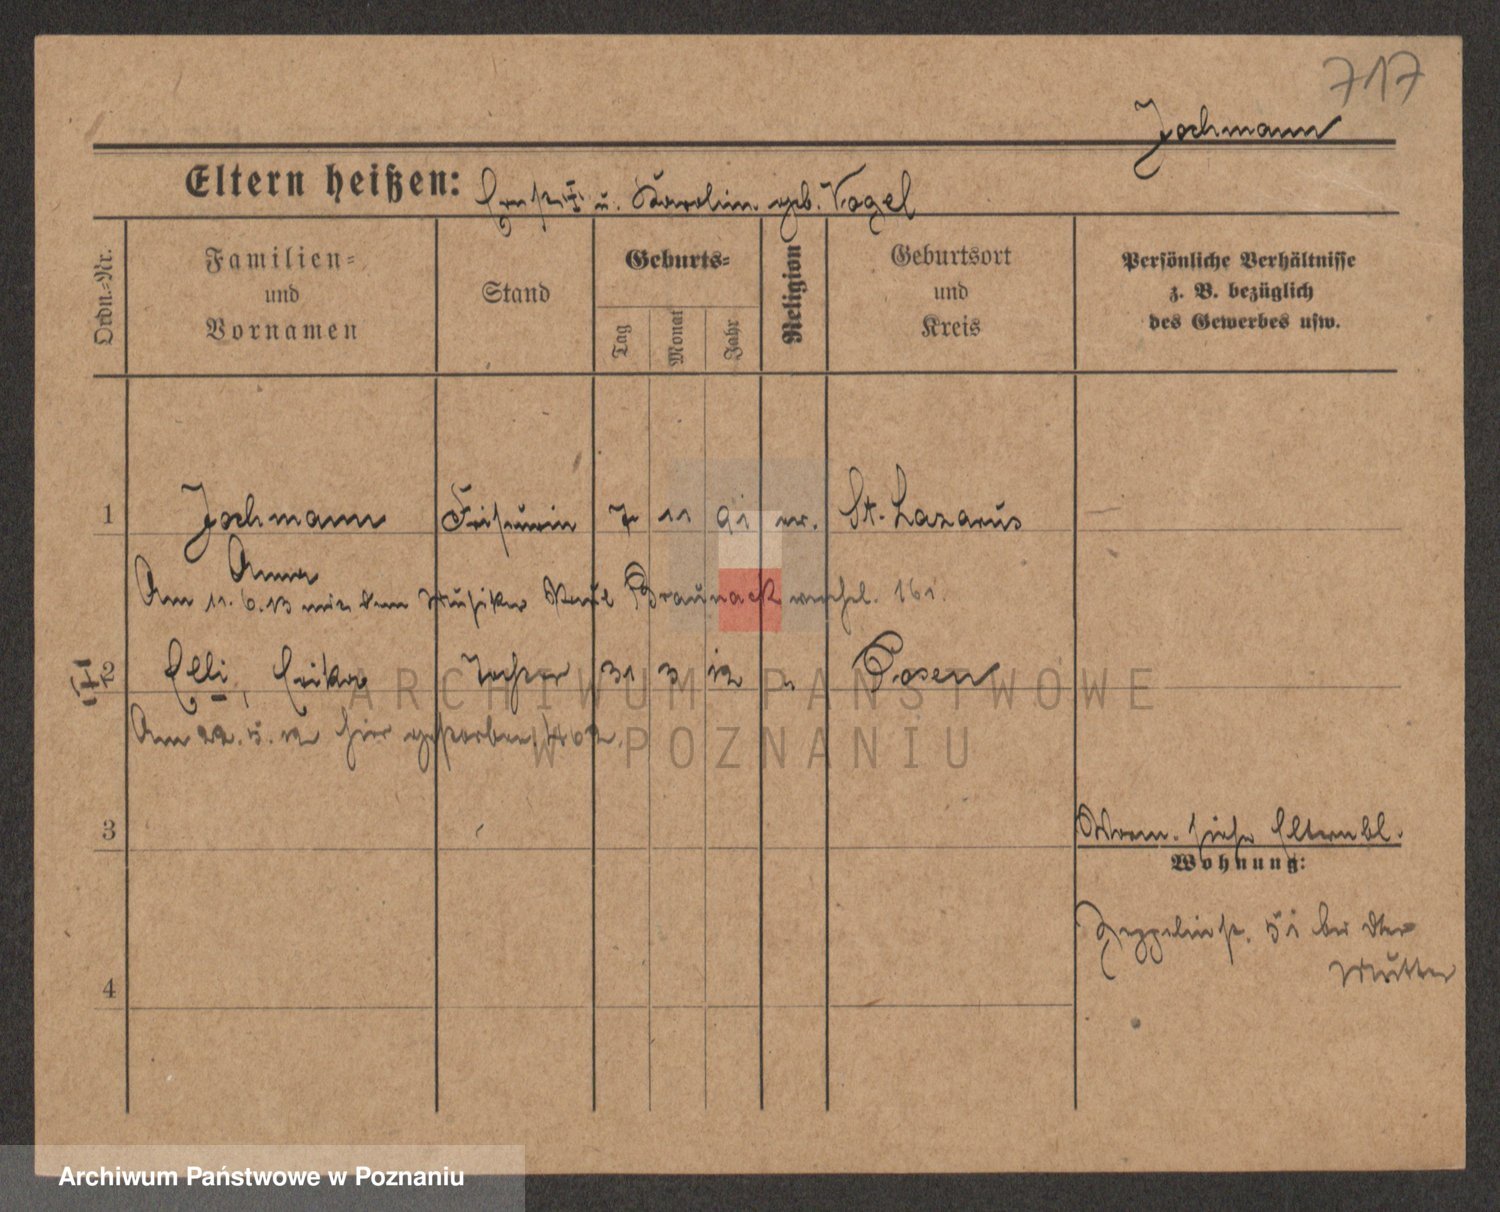 717
Jochmann
Eltern heißen: Ernst † u. Karolin. geb. Vogel
Ordn.-Nr.
Familien=
und
Vornamen
Stand
Geburts=
Tag
Monat
Jahr
Religion
Geburtsort
und
Kreis
Persönliche Verhältnisse
z. B. bezüglich
des Gewerbes usw.
1 Jochmann Friseurin 7 11 91 ev. St. Lazarus
Anna
Am 11. 6. 13 mit dem Musiker Paul Braunack verehel. 161.
2 Elli, Erika Tochter 31 3 12 " Posen
Am 22. 5. 12 hier gestorben
3
Vorm. siehe Elternbl.
Wohnung:
Zeppelinstr. 51 bei der
Mutter
4
ARCHIWUM PAŃSTWOWE
W POZNANIU
Archiwum Państwowe w Poznaniu